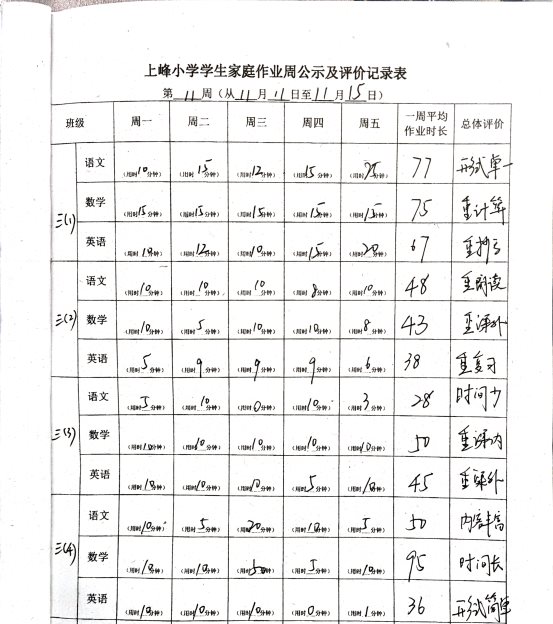 上峰小学学生家庭作业周公示及评价记录表
第 11 周（从 11 月 11 日至 11 月 15 日）
班级 周一 周二 周三 周四 周五 一周平均作业时长 总体评价
三(1) 语文 （用时10分钟） （用时15分钟） （用时12分钟） （用时15分钟） （用时25分钟） 77 形式单一
数学 （用时15分钟） （用时15分钟） （用时15分钟） （用时15分钟） （用时15分钟） 75 重计算
英语 （用时10分钟） （用时12分钟） （用时10分钟） （用时15分钟） （用时20分钟） 67 重抄写
三(2) 语文 （用时10分钟） （用时10分钟） （用时10分钟） （用时8分钟） （用时10分钟） 48 重朗读
数学 （用时10分钟） （用时5分钟） （用时10分钟） （用时10分钟） （用时8分钟） 43 重课外
英语 （用时5分钟） （用时9分钟） （用时9分钟） （用时9分钟） （用时6分钟） 38 重复习
三(3) 语文 （用时5分钟） （用时10分钟） （用时0分钟） （用时10分钟） （用时3分钟） 28 时间少
数学 （用时10分钟） （用时10分钟） （用时10分钟） （用时10分钟） （用时10分钟） 50 重课内
英语 （用时10分钟） （用时10分钟） （用时10分钟） （用时5分钟） （用时10分钟） 45 重课外
三(4) 语文 （用时10分钟） （用时5分钟） （用时20分钟） （用时10分钟） （用时5分钟） 50 内容丰富
数学 （用时10分钟） （用时10分钟） （用时 分钟） （用时5分钟） （用时10分钟） 95 时间长
英语 （用时10分钟） （用时10分钟） （用时10分钟） （用时0分钟） （用时1分钟） 36 形式简单